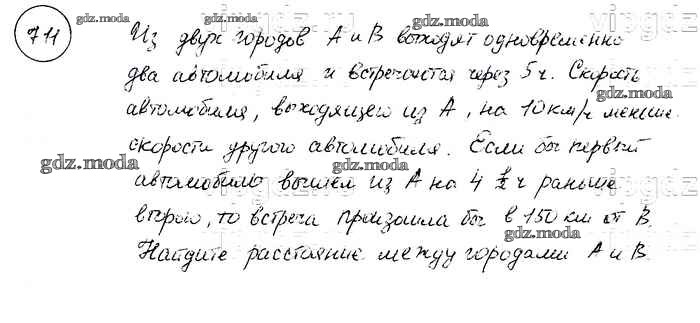 711
Из двух городов А и В выходят одновременно
два автомобиля и встречаются через 5 ч. Скорость
автомобиля, выходящего из А, на 10 км/ч меньше
скорости другого автомобиля. Если бы первый
автомобиль вышел из А на 4 1/2 ч раньше
второго, то встреча произошла бы в 150 км от В.
Найдите расстояние между городами А и В
gdz.moda
gdz.moda
gdz.moda
gdz.moda
gdz.moda
gdz.moda
gdz.moda
gdz.moda
vipgdz
vipgdz